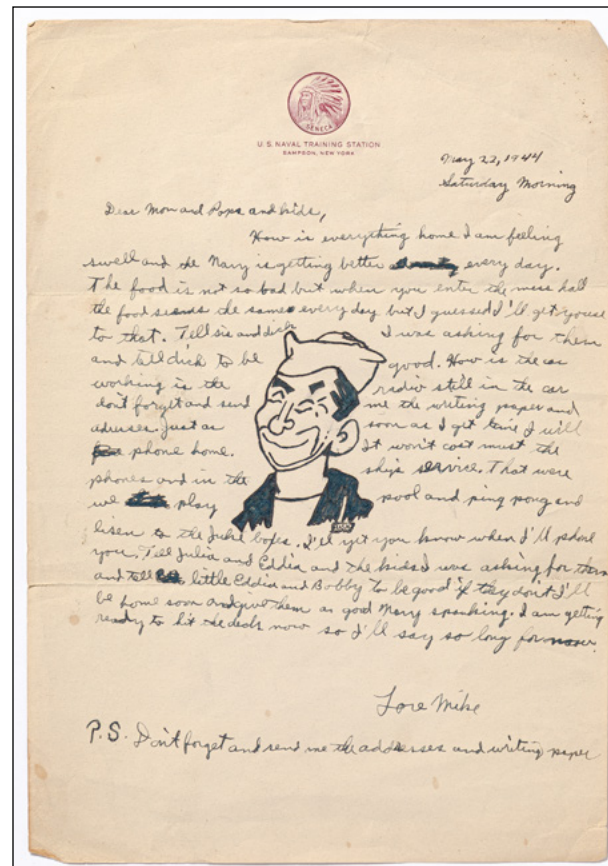 SENECA
U.S. NAVAL TRAINING STATION
SAMPSON, NEW YORK
May 22, 1944
Saturday Morning
Dear Mom and Pops and kids,
How is everything home I am feeling
swell and the Navy is getting better every day.
The food is not so bad but when you enter the mess hall
the food seems the same every day but I guessed I'll get youse
to that. Tell sis and dick I was asking for them
and tell dick to be good. How is the car
working is the radio still in the car
don't forget and send me the writing paper and
adresses. Just as soon as I get time I will
phone home. It won't cost must the
phones and in the ship's service. That were
we play pool and ping pong and
lisen to the Juke boxes. I'll let you know when I'll phone
you. Tell Julia and Eddie and the kids I was asking for them
and tell little Eddie and Bobby to be good if they don't I'll
be home soon and give them a good Navy spanking. I am getting
ready to hit the deck now so I'll say so long for now.
Love Mike
P.S. Don't forget and send me the addresses and writing paper